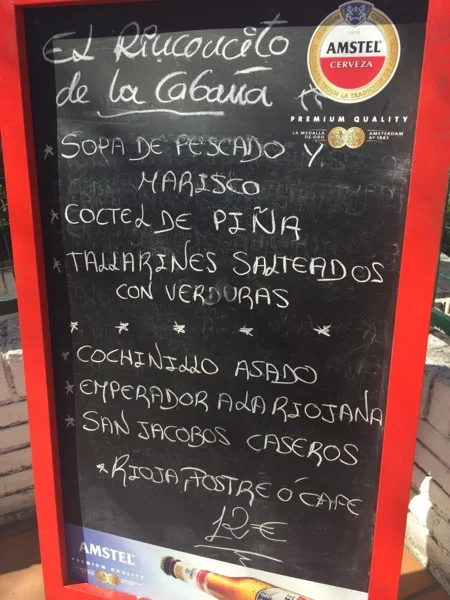 El Rinconcito
de la Cabaña
AMSTEL
CERVEZA
PREMIUM QUALITY
LA MEDALLA DE ORO
AMSTERDAM Aº 1883
* SOPA DE PESCADO Y
MARISCO
* COCTEL DE PIÑA
* TALLARINES SALTEADOS
CON VERDURAS
* * * * *
* COCHINILLO ASADO
* EMPERADOR A LA RIOJANA
* SAN JACOBOS CASEROS
* RIOJA, POSTRE Ó CAFE
12€
AMSTEL
PREMIUM QUALITY